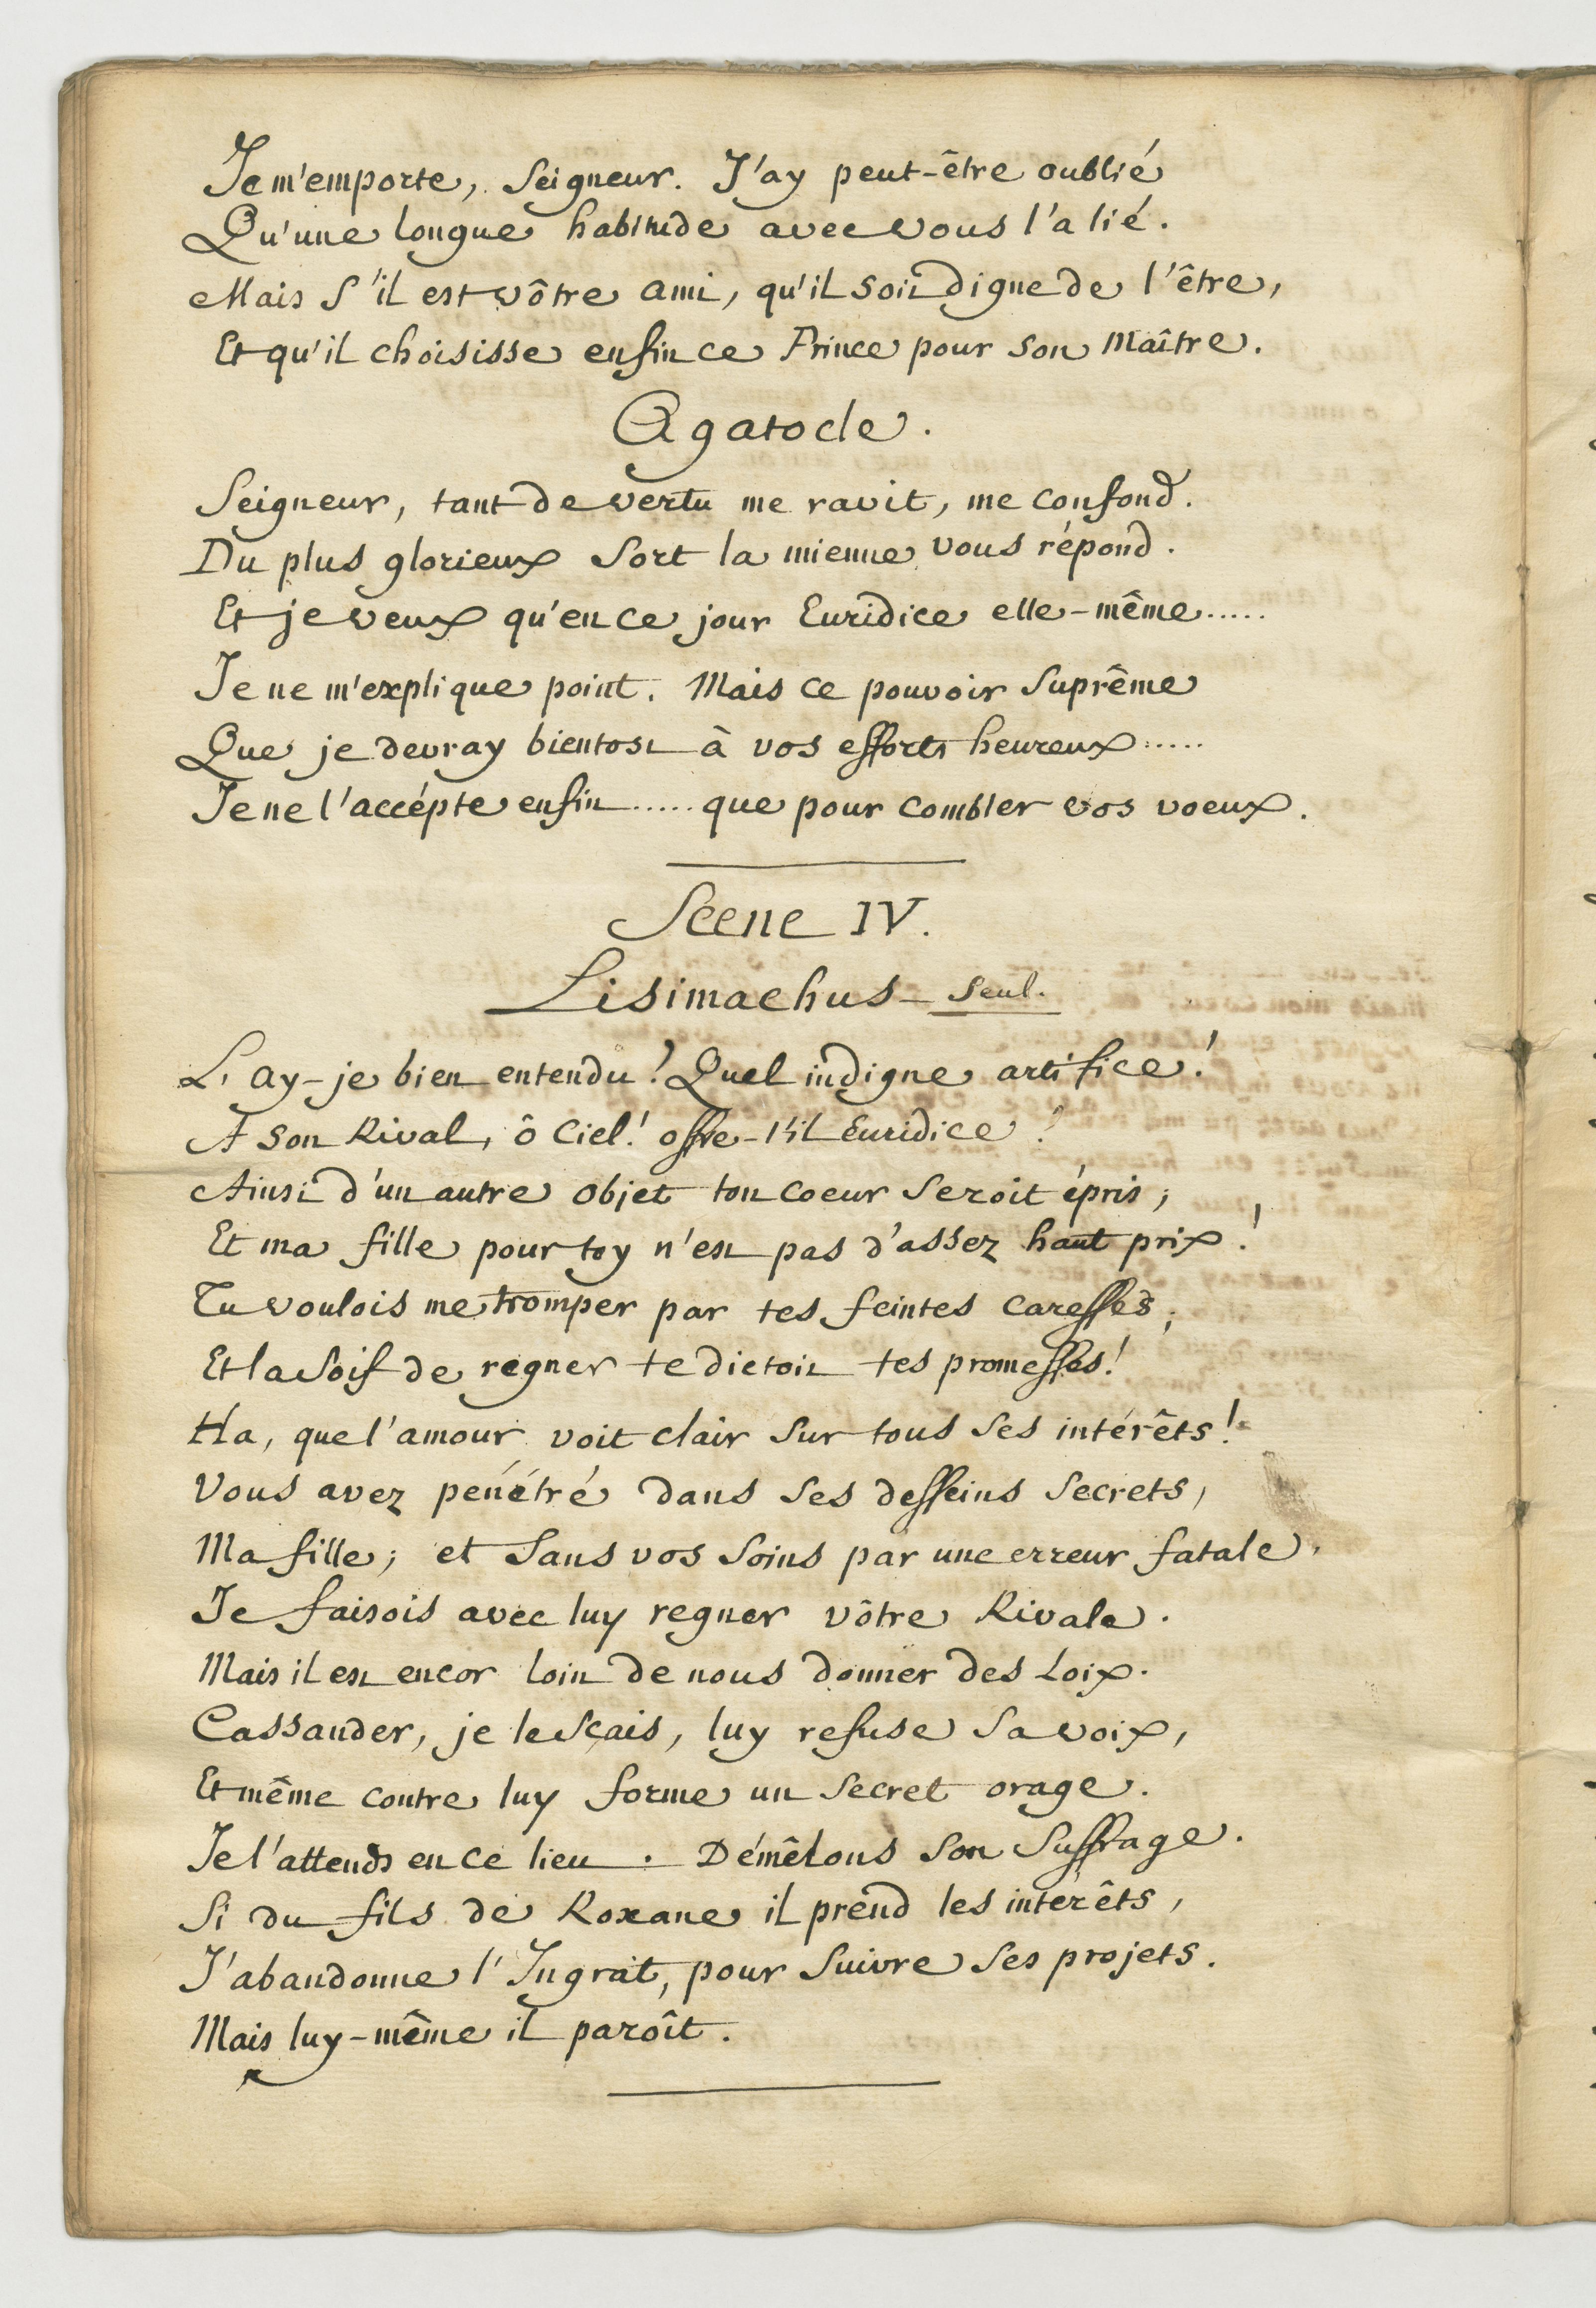 Je m'emporte, Seigneur. J'ay peut-être oublié
Qu'une longue habitude avec vous l'a lié.
Mais s'il est vôtre ami, qu'il soit digne de l'être,
Et qu'il choisisse enfin ce Prince pour son Maître.
Agatocle.
Seigneur, tant de vertu me ravit, me confond.
Du plus glorieux sort la mienne vous répond.
Et je veux qu'en ce jour Euridice elle-même.....
Je ne m'explique point. Mais ce pouvoir suprême
Que je devray bientost à vos efforts heureux.....
Je ne l'accépte enfin..... que pour combler vos voeux.
Scene IV.
Lisimachus seul.
L'ay-je bien entendu! Quel indigne artifice!
A son Rival, ô Ciel! offre-t'il Euridice?
Ainsi d'un autre objet ton coeur seroit épris;
Et ma fille pour toy n'est pas d'assez haut prix!
Tu voulois me tromper par tes feintes caresses;
Et la soif de regner te dictoit tes promesses!
Ha, que l'amour voit clair sur tous ses intérêts!
Vous avez pénétré dans ses desseins secrets,
Ma fille; et sans vos soins par une erreur fatale,
Je faisois avec luy regner vôtre Rivale.
Mais il est encor loin de nous donner des Loix.
Cassander, je le sçais, luy refuse sa voix,
Et même contre luy forme un secret orage.
Je l'attends en ce lieu. Démêlons son suffrage.
Si du fils de Roxane il prend les intérêts,
J'abandonne l'Ingrat, pour suivre ses projets.
Mais luy-même il paroît.